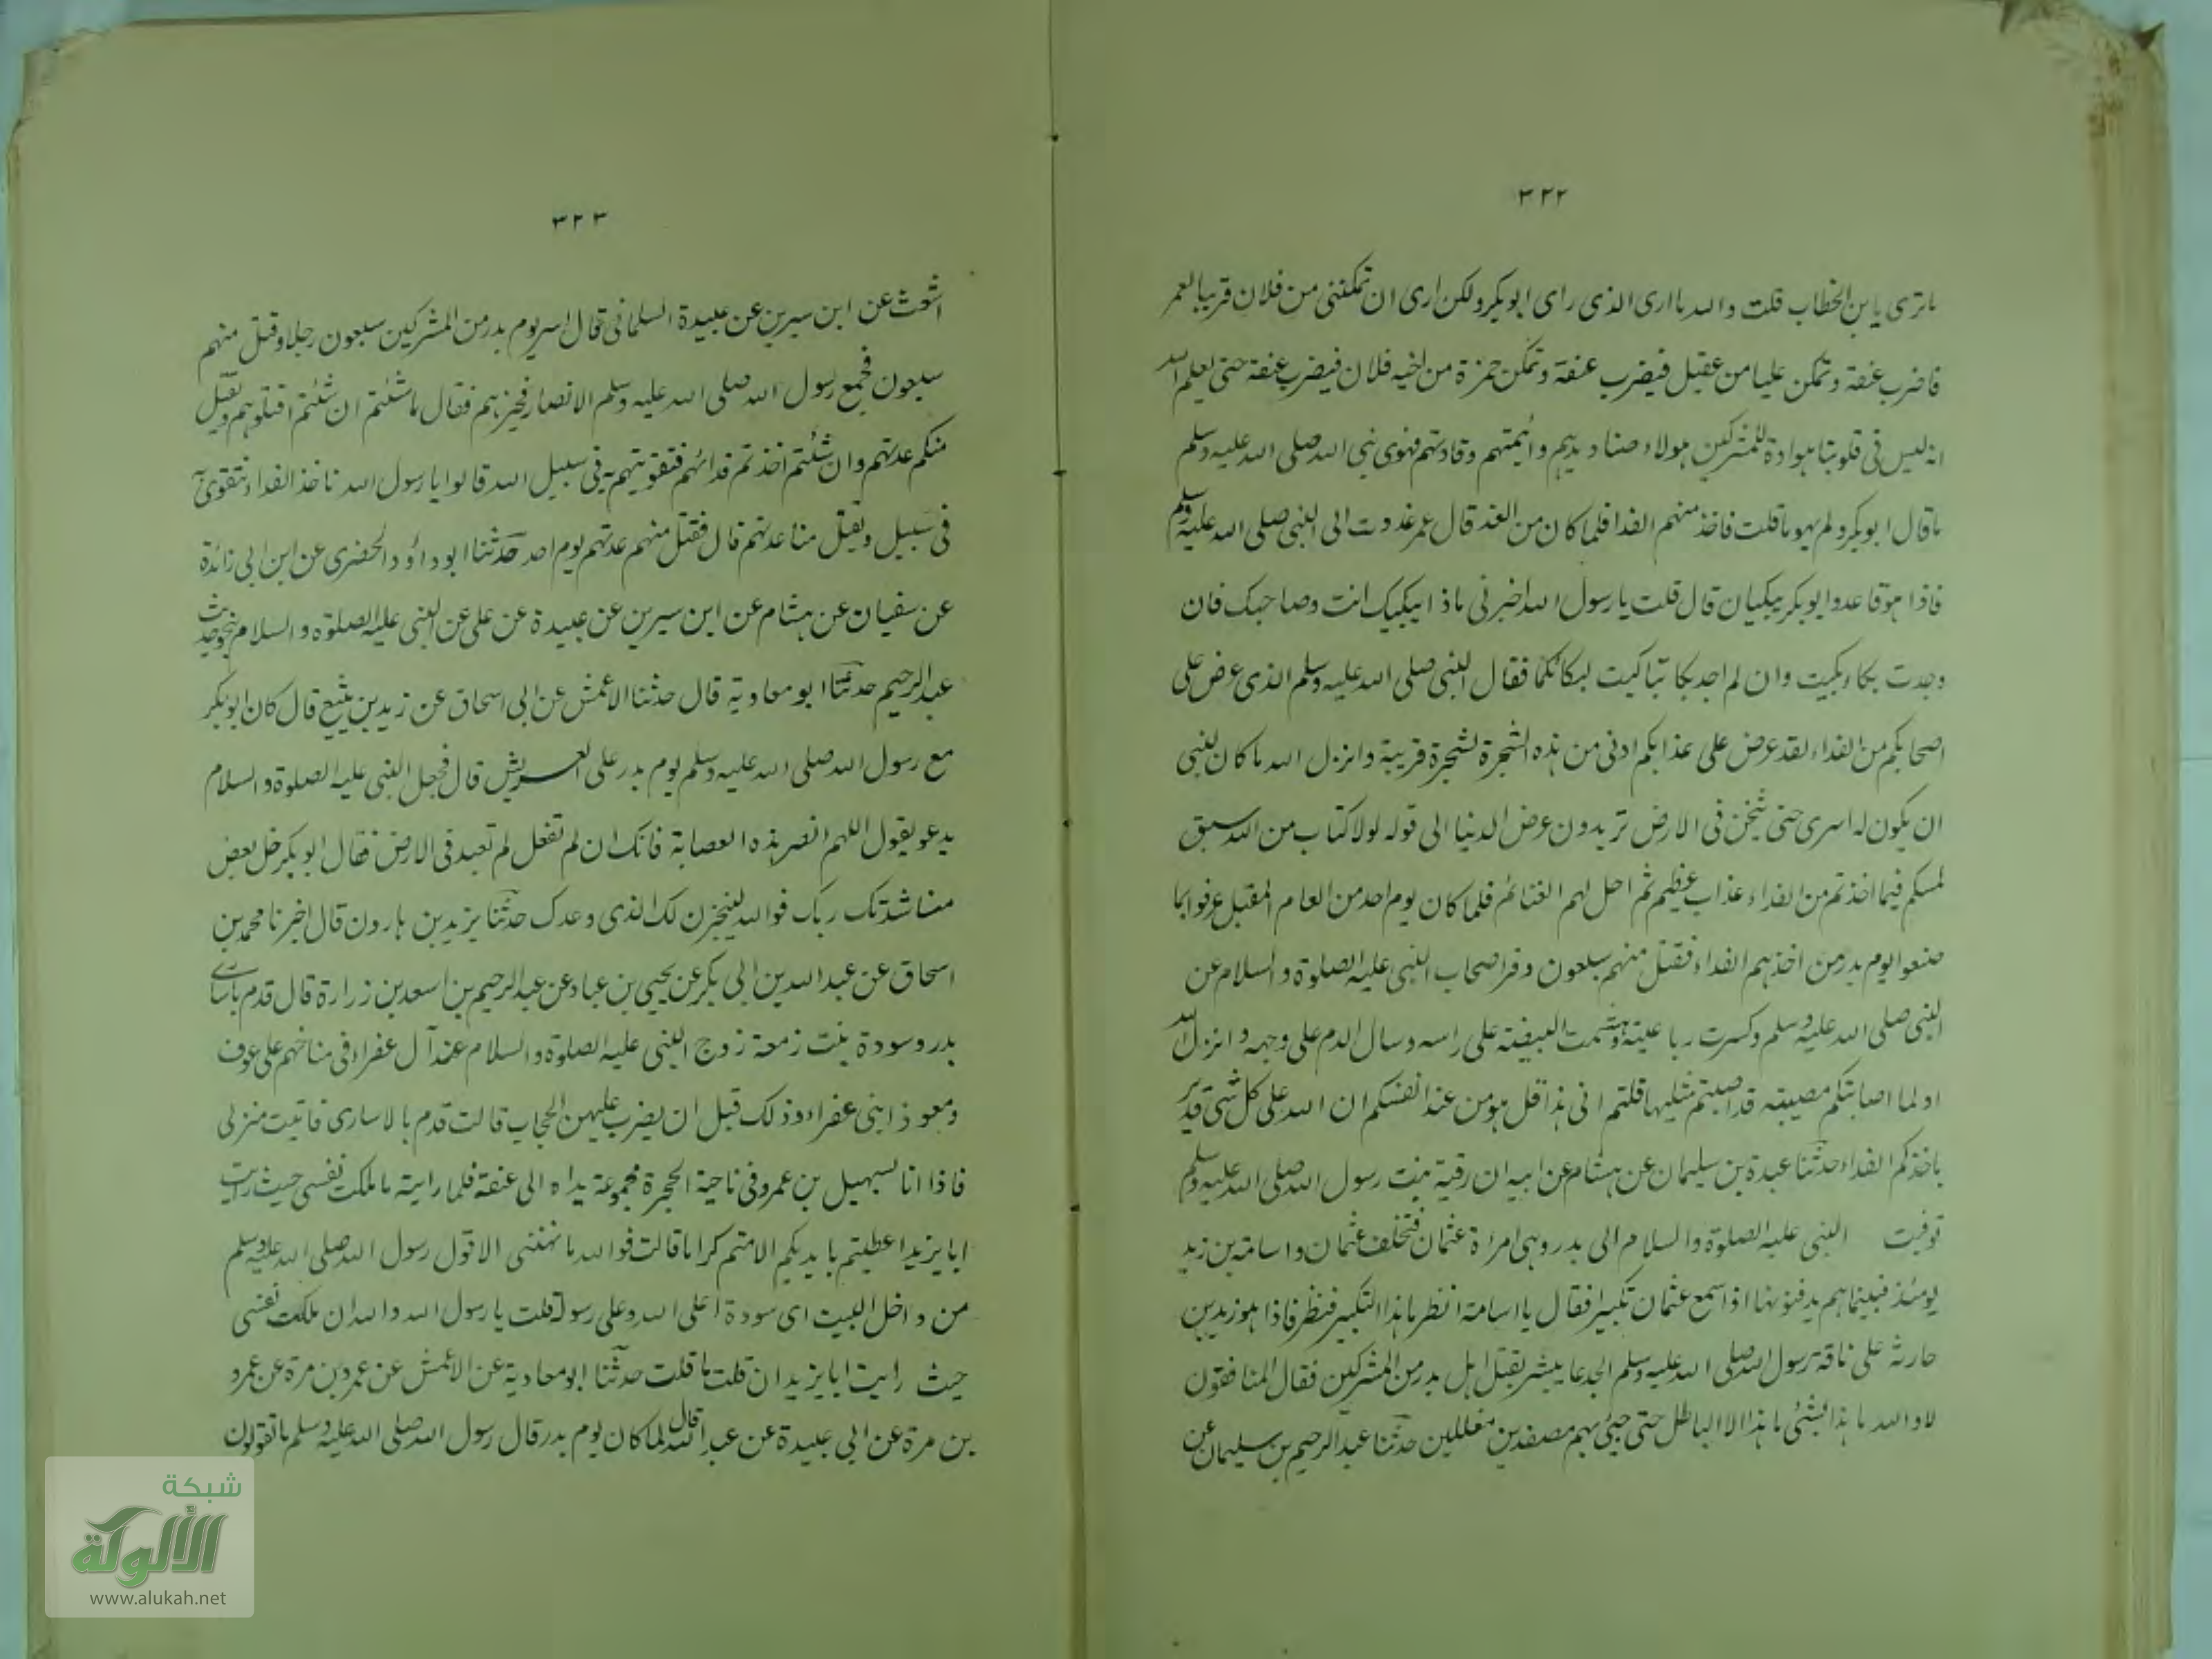 ٣٢٢
ماترى يا بن الخطاب قلت والله ما ارى الذى راى ابو بكر ولكن ارى ان تمكننى من فلان قريبا لعمر
فاضرب عنقه وتمكن عليا من عقيل فيضرب عنقه وتمكن حمزة من اخيه فلان فيضرب عنقه حتى يعلم الله
انه ليس فى قلوبنا هوادة للمشركين هولاء صناديدهم وائمتهم وقادتهم فهوى نبى الله صلى الله عليه وسلم
ماقال ابو بكر ولم يهو ماقلت فاخذ منهم الفدا فلما كان من الغد قال عمر غدوت الى النبى صلى الله عليه وسلم
فاذا هو قاعد وابو بكر يبكيان قال قلت يا رسول الله اخبرنى ماذا يبكيك انت وصاحبك فان
وجدت بكاء بكيت وان لم اجد بكا تباكيت لبكائكما فقال النبى صلى الله عليه وسلم الذى عرض على
اصحابكم من الفداء لقد عرض على عذابكم ادنى من هذه الشجرة لشجرة قريبة وانزل الله ما كان لنبى
ان يكون له اسرى حتى يثخن فى الارض تريدون عرض الدنيا الى قوله لولا كتاب من الله سبق
لمسكم فيما اخذتم من الفداء عذاب عظيم ثم احل لهم الغنائم فلما كان يوم احد من العام المقبل عوقبوا بما
صنعوا يوم بدر من اخذهم الفداء فقتل منهم سبعون وفر اصحاب النبى عليه الصلوة والسلام عن
النبى صلى الله عليه وسلم وكسرت رباعيته وهشمت البيضة على راسه وسال الدم على وجهه وانزل الله
اولما اصابتكم مصيبة قد اصبتم مثليها قلتم انى هذا قل هو من عند انفسكم ان الله على كل شئ قدير
باخذكم الفداء حدثنا عبدة بن سليمان عن هشام عن ابيه ان رقية بنت رسول الله صلى الله عليه وسلم
توفيت النبى عليه الصلوة والسلام الى بدر وهى امرأة عثمان فتخلف عثمان واسامة بن زيد
يومئذ فبينما هم يدفنونها اذا سمع عثمان تكبيرا فقال يا اسامة انظر ما هذا التكبير فنظر فاذا هو زيد بن
حارثة على ناقة رسول الله صلى الله عليه وسلم الجدعا يبشر بقتل اهل بدر من المشركين فقال المنافقون
لا والله ما هذا بشئ ما هذا الا الباطل حتى جيئ بهم مصفدين مغللين حدثنا عبد الرحيم بن سليمان عن
٣٢٣
اشعث عن ابن سيرين عن عبيدة السلمانى قال اسر يوم بدر من المشركين سبعون رجلا وقتل منهم
سبعون فجمع رسول الله صلى الله عليه وسلم الانصار فخيرهم فقال ما شئتم ان شئتم اقتلوهم ويقتل
منكم عدتهم وان شئتم اخذتم فدائهم فتقويتهم به فى سبيل الله قالوا يا رسول الله ناخذ الفداء نتقوى به
فى سبيل ويقتل منا عدتهم قال فقتل منهم عدتهم يوم احد حدثنا ابو داؤد الحضرى عن ابن ابى زائدة
عن سفيان عن هشام عن ابن سيرين عن عبيدة عن على عن النبى عليه الصلوة والسلام بنحو حديث
عبد الرحيم حدثنا ابو معاوية قال حدثنا الاعمش عن ابى اسحاق عن زيد بن يثيع قال كان ابو بكر
مع رسول الله صلى الله عليه وسلم يوم بدر على العريش قال فجعل النبى عليه الصلوة والسلام
يدعو يقول اللهم انصر هذه العصابة فانك ان لم تفعل لم تعبد فى الارض فقال ابو بكر خل بعض
مناشدتك ربك فوالله لينجزن لك الذى وعدك حدثنا يزيد بن هارون قال اخبرنا محمد بن
اسحاق عن عبد الله بن ابى بكر عن يحيى بن عباد عن عبد الرحيم بن اسعد بن زرارة قال قدم باسارى
بدر وسودة بنت زمعة زوج النبى عليه الصلوة والسلام عند آل عفراء فى مناخهم على عوف
ومعوذ ابنى عفراء وذلك قبل ان يضرب عليهن الحجاب قالت قدم بالاسارى فاتيت منزلى
فاذا انا لسهيل بن عمرو فى ناحية الحجرة مجموعة يداه الى عنقه فلما رايته ما ملكت نفسى حيث رايت
ابا يزيد اعطيتم بايديكم الا متم كراما قالت فوالله ما نهنهنى الا قول رسول الله صلى الله عليه وسلم
من داخل البيت اى سودة اعلى الله وعلى رسوله قلت يا رسول الله والله ان ملكت نفسى
حيث رايت ابا يزيد ان قلت ما قلت حدثنا ابو معاوية عن الاعمش عن عمرو بن مرة عن عمرو
بن مرة عن ابى عبيدة عن عبد الله قال لما كان يوم بدر قال رسول الله صلى الله عليه وسلم ماتقولون
شبكة
الألوكة
www.alukah.net